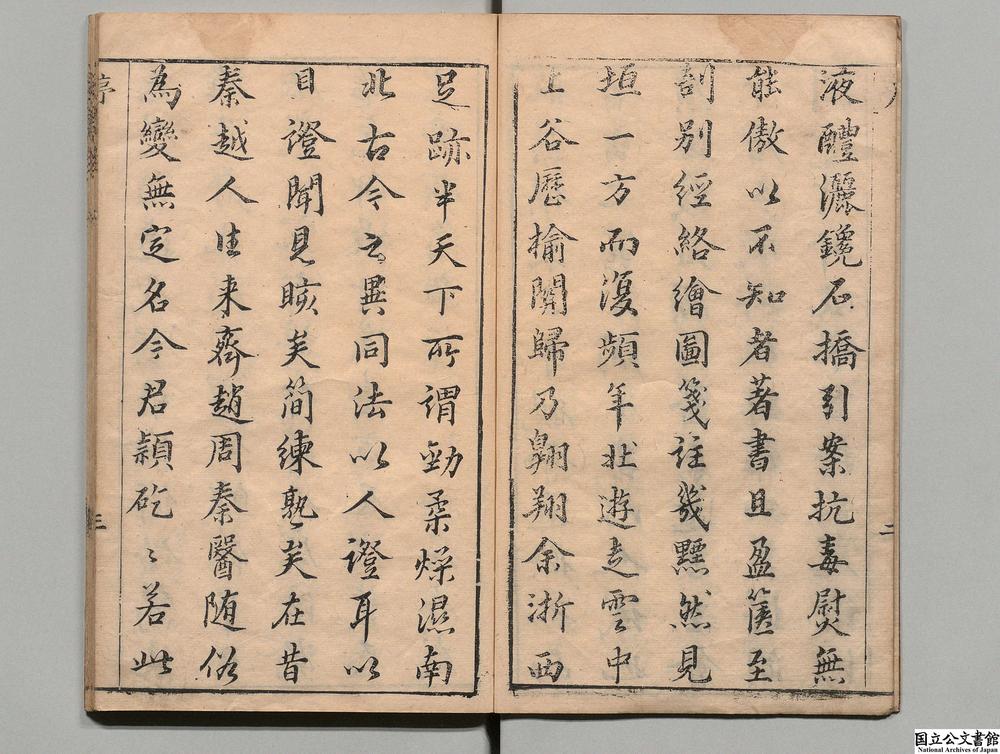 液醴灑鑱石撟引案抗毒熨無
能傲以不知者著書且盈篋至
剖別經絡繪圖箋註幾黯然見
垣一方而復頻年壯遊走雲中
上谷歷揄關歸乃翺翔余浙西
二
足跡半天下所謂勁柔燥濕南
北古今之異同法以人證耳以
目證聞見晐矣簡練熟矣在昔
秦越人生来齊趙周秦醫随俗
為變無定名今君穎矻〻若此
序
三
国立公文書館
National Archives of Japan